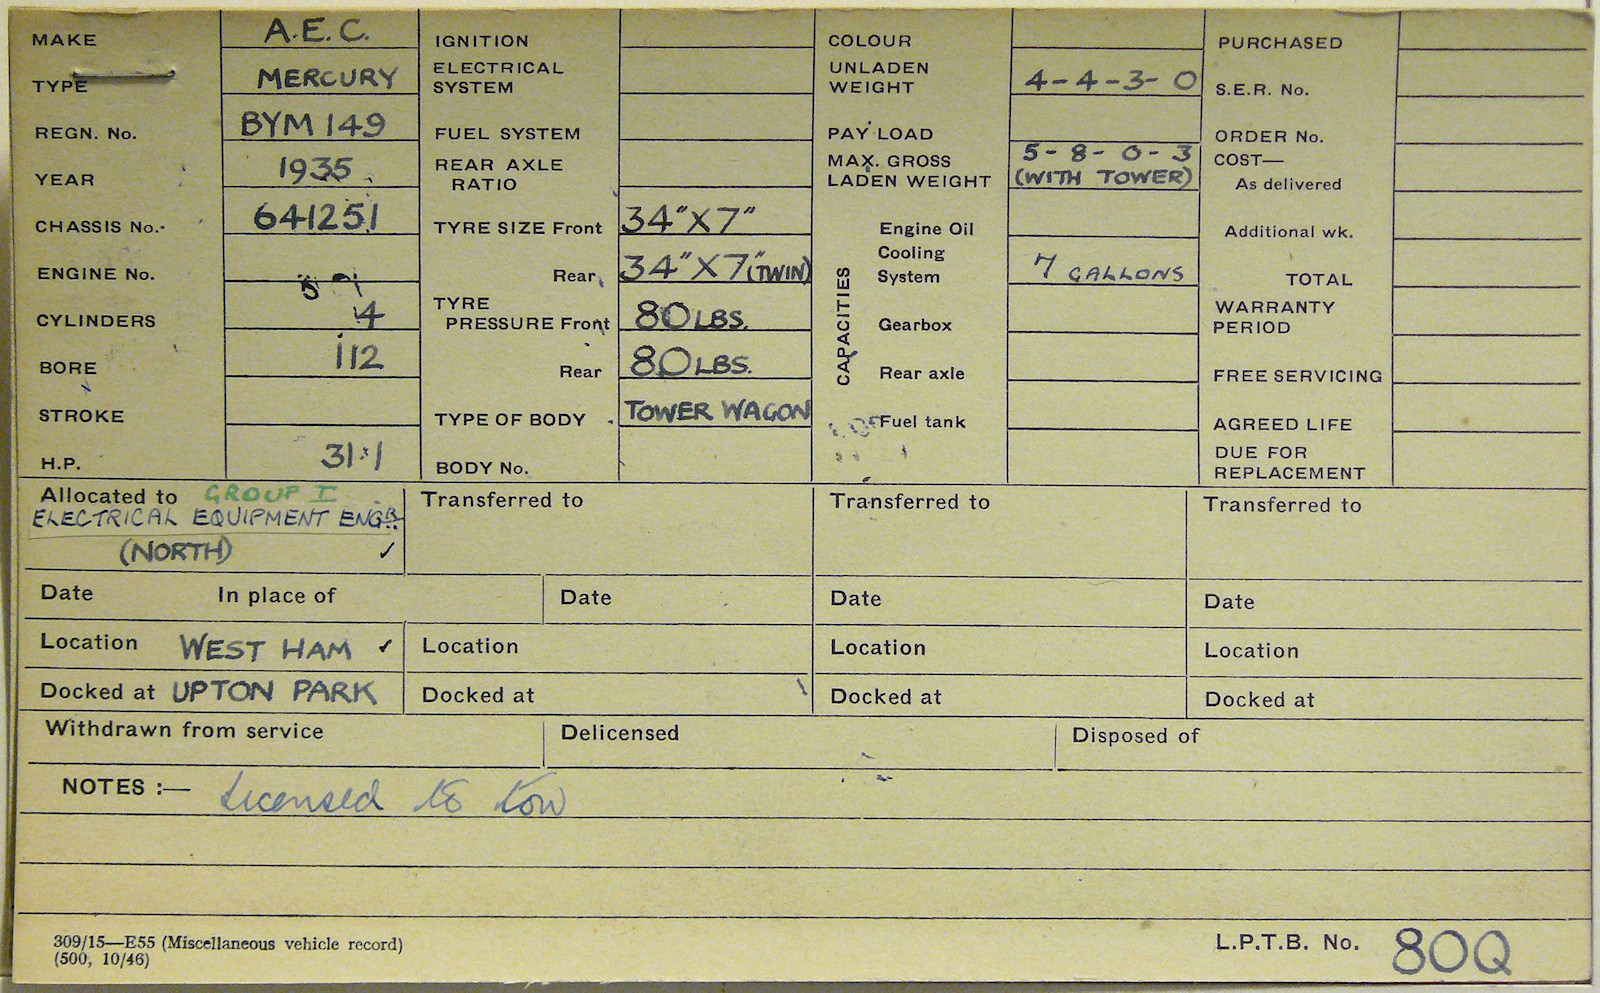 MAKE A.E.C.
TYPE MERCURY
REGN. No. BYM 149
YEAR 1935
CHASSIS No. 641251
ENGINE No.
CYLINDERS 4
BORE 112
STROKE
H.P. 31·1
IGNITION
ELECTRICAL
SYSTEM
FUEL SYSTEM
REAR AXLE
RATIO
TYRE SIZE Front 34"X7"
Rear 34"X7"(TWIN)
TYRE
PRESSURE Front 80 LBS.
Rear 80 LBS.
TYPE OF BODY TOWER WAGON
BODY No.
COLOUR
UNLADEN
WEIGHT 4-4-3-0
PAY LOAD
MAX. GROSS 5-8-0-3
LADEN WEIGHT (WITH TOWER)
CAPACITIES
Engine Oil
Cooling
System 7 GALLONS
Gearbox
Rear axle
Fuel tank
PURCHASED
S.E.R. No.
ORDER No.
COST—
As delivered
Additional wk.
TOTAL
WARRANTY
PERIOD
FREE SERVICING
AGREED LIFE
DUE FOR
REPLACEMENT
Allocated to GROUP I
ELECTRICAL EQUIPMENT ENGR.
(NORTH) ✓
Transferred to
Transferred to
Transferred to
Date In place of
Date
Date
Date
Location WEST HAM ✓
Location
Location
Location
Docked at UPTON PARK
Docked at
Docked at
Docked at
Withdrawn from service
Delicensed
Disposed of
NOTES :— Licensed to tow
309/15—E55 (Miscellaneous vehicle record)
(500, 10/46)
L.P.T.B. No. 80Q